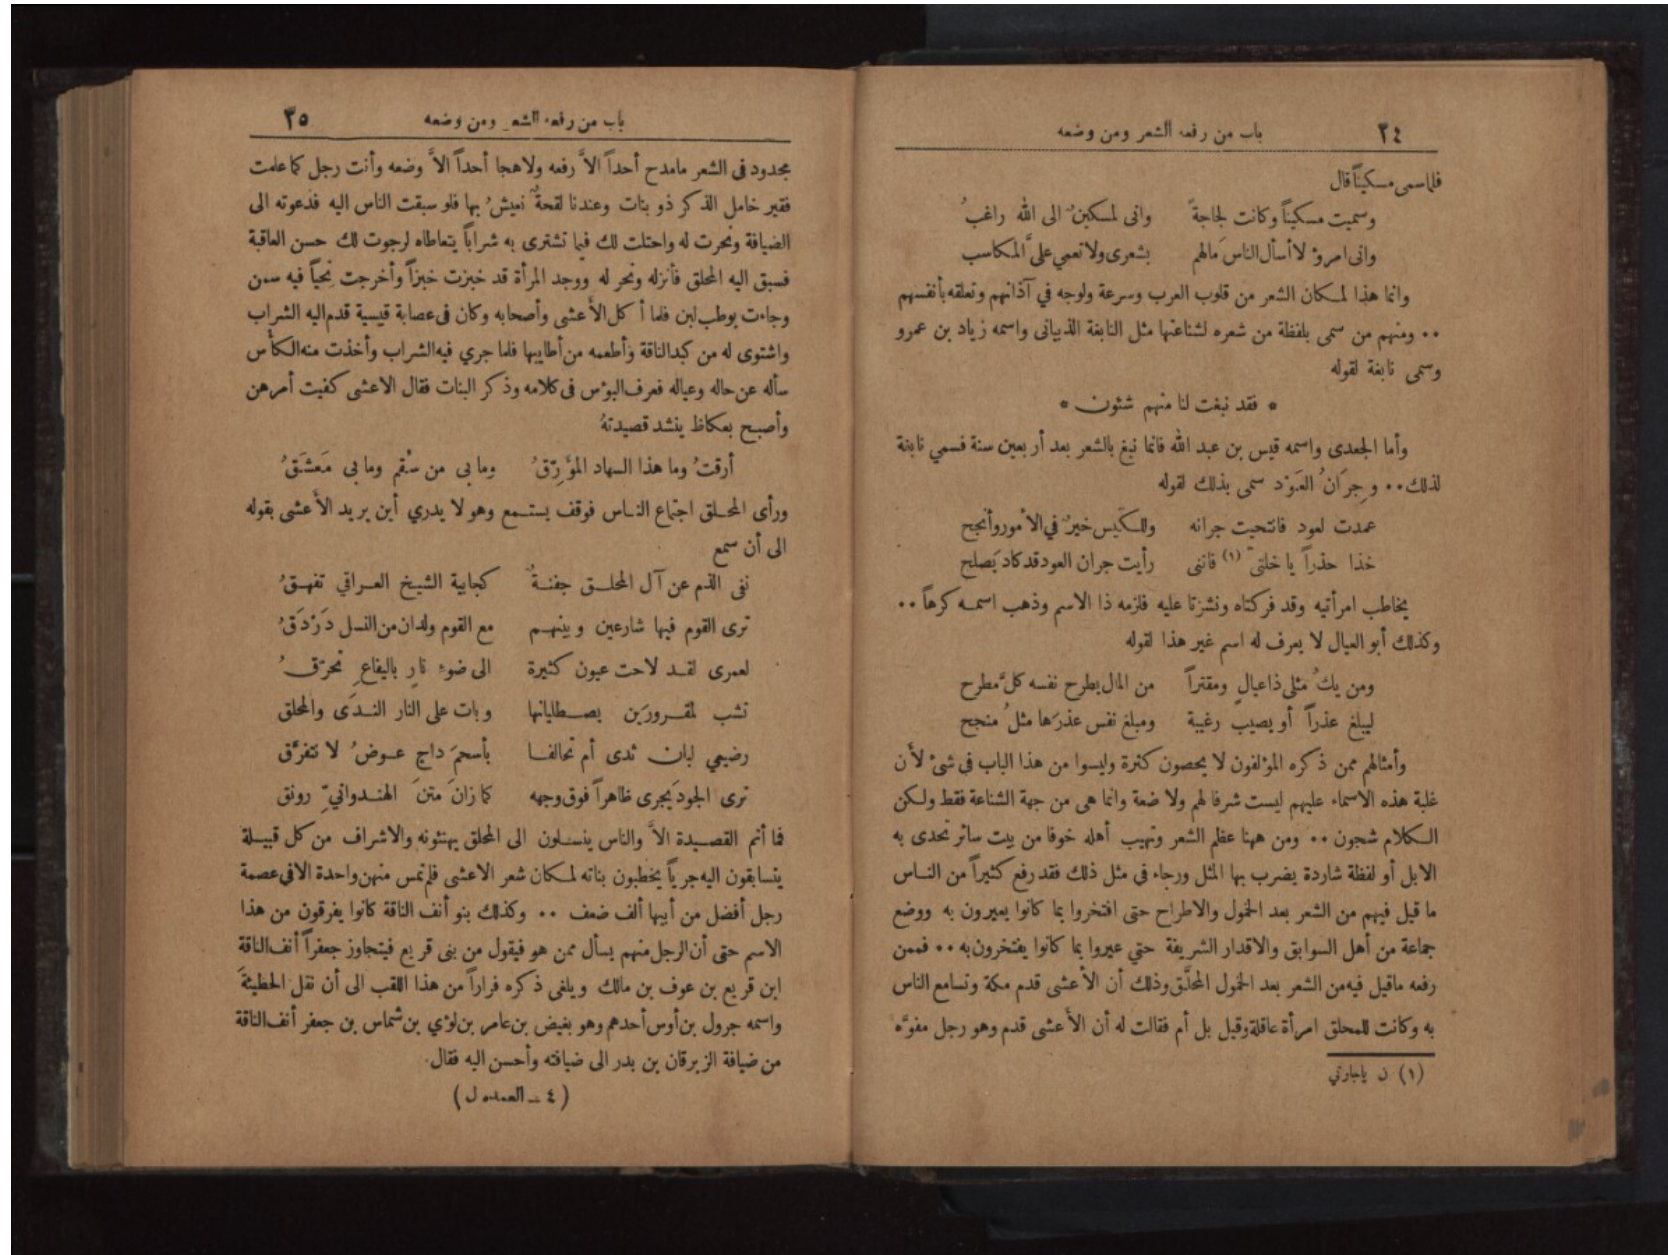 ٢٤ باب من رفعه الشعر ومن وضعه
فلما سمى مسكيناً قال
وسميت مسكيناً وكانت لجاجةً وانى لمسكينٌ الى الله راغبُ
وانى امرؤ لا أسأل الناسَ مالهم بشعرى ولا تعمي علىَّ المكاسب
وانما هذا لمكان الشعر من قلوب العرب وسرعة ولوجه في آذانهم وتعلقه بأنفسهم
٠٠ ومنهم من سمى بلفظة من شعره لشناعتها مثل النابغة الذبيانى واسمه زياد بن عمرو
وسمى نابغة لقوله
* فقد نبغت لنا منهم شئون *
وأما الجعدى واسمه قيس بن عبد الله فانما نبغ بالشعر بعد أربعين سنة فسمي نابغة
لذلك ٠٠ وجِرَانُ العَوْد سمى بذلك لقوله
عمدت لعود فانتحيت جرانه وللكَيس خيرٌ في الأمور وأنجح
خذا حذراً يا خلتيّ (١) فاننى رأيت جران العود قد كاد يَصلح
يخاطب امرأتيه وقد فركتاه ونشزتا عليه فلزمه ذا الاسم وذهب اسمه كرهاً ٠٠
وكذلك أبو العيال لا يعرف له اسم غير هذا لقوله
ومن يكُ مثلى ذا عيالٍ ومقتراً من المال يطرح نفسه كلَّ مطرح
ليبلغ عذراً أو يصيب رغيبة ومبلغ نفس عذرَها مثلُ منجح
وأمثالهم ممن ذكره المؤلفون لا يحصون كثرة وليسوا من هذا الباب في شئ لأن
غلبة هذه الاسماء عليهم ليست شرفا لهم ولا ضعة وانما هى من جهة الشناعة فقط ولكن
الكلام شجون ٠٠ ومن ههنا عظم الشعر وتهيب أهله خوفا من بيت سائر تحدى به
الابل أو لفظة شاردة يضرب بها المثل ورجاء في مثل ذلك فقد رفع كثيراً من الناس
ما قيل فيهم من الشعر بعد الخمول والاطراح حتى افتخروا بما كانوا يعيرون به ووضع
جماعة من أهل السوابق والاقدار الشريفة حتي عيروا بما كانوا يفتخرون به ٠٠ فممن
رفعه ماقيل فيه من الشعر بعد الخمول المحلَّق وذلك أن الأعشى قدم مكة وتسامع الناس
به وكانت للمحلق امرأة عاقلة وقيل بل أم فقالت له أن الأعشى قدم وهو رجل مفوَّه
(١) ن ياجارتي
باب من رفعه الشعر ومن وضعه ٣٥
مجدود فى الشعر مامدح أحداً الاَّ رفعه ولاهجا أحداً الاَّ وضعه وأنت رجل كما علمت
فقير خامل الذكر ذو بنات وعندنا لقحةٌ نعيشُ بها فلو سبقت الناس اليه فدعوته الى
الضيافة ونحرت له واحتلت لك فيما تشترى به شراباً يتعاطاه لرجوت لك حسن العاقبة
فسبق اليه المحلق فأنزله ونحر له ووجد المرأة قد خبزت خبزاً وأخرجت نِحياً فيه سمن
وجاءت بوطب لبن فلما أكل الأعشى وأصحابه وكان فى عصابة قيسية قدم اليه الشراب
واشتوى له من كبد الناقة وأطعمه من أطايبها فلما جري فيه الشراب وأخذت منه الكأس
سأله عن حاله وعياله فعرف البؤس فى كلامه وذكر البنات فقال الاعشى كفيت أمرهن
وأصبح بعكاظ ينشد قصيدتهُ
أرقتُ وما هذا السهاد المؤَرِّقُ وما بى من سُقم وما بى مَعشَقُ
ورأى المحلق اجتماع الناس فوقف يستمع وهو لا يدري أين يريد الأعشى بقوله
الى أن سمع
نفى الذم عن آل المحلق جفنةٌ كجابية الشيخ العراقي تفهقُ
ترى القوم فيها شارعين وبينهم مع القوم ولدان من النسل دَرْدَقُ
لعمرى لقد لاحت عيون كثيرة الى ضوء نارٍ باليفاعِ تحرَّقُ
تشب لمقرورَين يصطليانها وبات على النار الندَى والمحلق
رضيعي لبان ثدى أم تحالفا بأسحمَ داجٍ عوضُ لا نتفرَّق
ترى الجودَ يجرى ظاهراً فوق وجهه كما زانَ متنَ الهندوانيِّ رونق
فما أتم القصيدة الاَّ والناس ينسلون الى المحلق يهنئونه والاشراف من كل قبيلة
يتسابقون اليه جرياً يخطبون بناته لمكان شعر الاعشى فلم تمس منهن واحدة الا في عصمة
رجل أفضل من أبيها ألف ضعف ٠٠ وكذلك بنو أنف الناقة كانوا يفرقون من هذا
الاسم حتى أن الرجل منهم يسأل ممن هو فيقول من بنى قريع فيتجاوز جعفراً أنف الناقة
ابن قريع بن عوف بن مالك ويلغى ذكره فراراً من هذا اللقب الى أن نقل الحطيئةَ
واسمه جرول بن أوس أحدهم وهو بغيض بن عامر بن لؤي بن شماس بن جعفر أنف الناقة
من ضيافة الزبرقان بن بدر الى ضيافته وأحسن اليه فقال
(٤ ــ العمده ل)